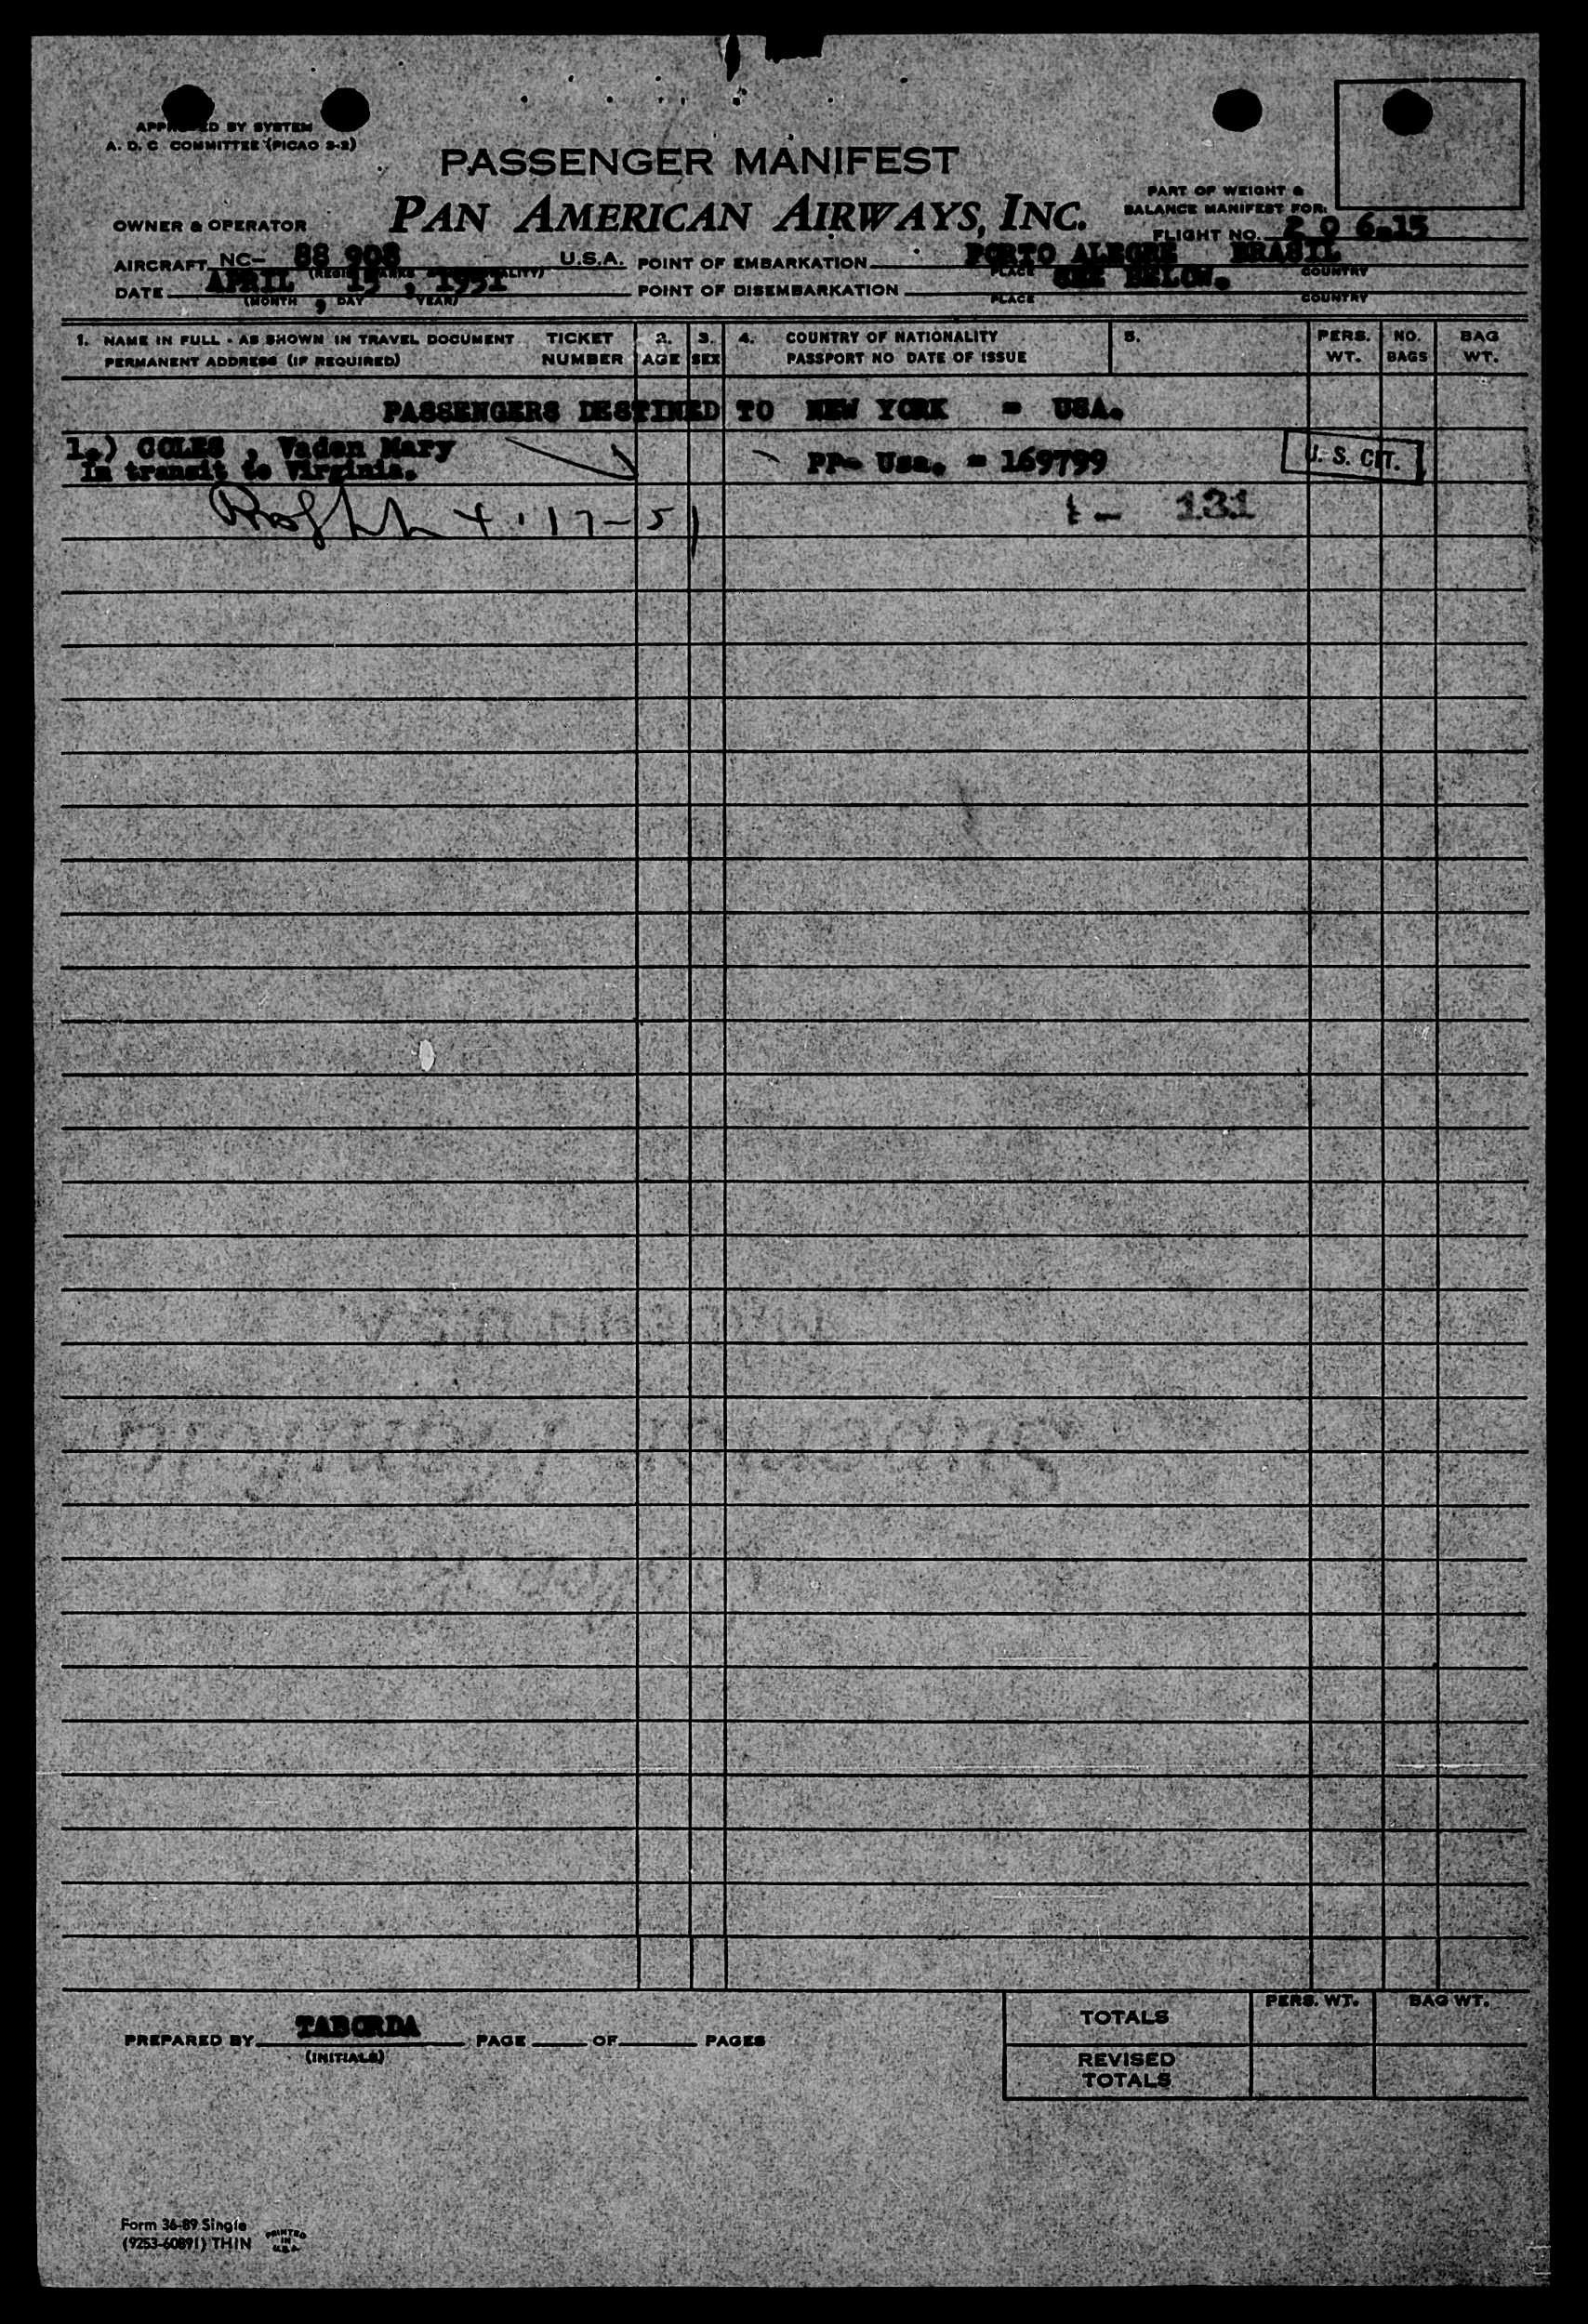 APPROVED BY SYSTEM
A. D. C COMMITTEE (PICAO 3-2)
PASSENGER MANIFEST
PAN AMERICAN AIRWAYS, INC.
PART OF WEIGHT &
BALANCE MANIFEST FOR:
OWNER & OPERATOR
FLIGHT NO. 2 0 6-15
AIRCRAFT NC- 88 908 U.S.A. POINT OF EMBARKATION PORTO ALEGRE BRASIL
PLACE COUNTRY
DATE APRIL 15, 1951 POINT OF DISEMBARKATION SEE BELOW.
(MONTH DAY YEAR) PLACE COUNTRY
1. NAME IN FULL - AS SHOWN IN TRAVEL DOCUMENT TICKET 2. 3. 4. COUNTRY OF NATIONALITY 5. PERS. NO. BAG
PERMANENT ADDRESS (IF REQUIRED) NUMBER AGE SEX PASSPORT NO DATE OF ISSUE WT. BAGS WT.
PASSENGERS DESTINED TO NEW YORK = USA.
1.) COLES , Vaden Mary
In transit to Virginia. PP- Usa. = 169799 U. S. CIT.
4-17-51 131
TOTALS PERS. WT. BAG WT.
PREPARED BY TABORDA PAGE OF PAGES
(INITIALS)
REVISED
TOTALS
Form 36-89 Single
(9253-60891) THIN PRINTED
IN
U.S.A.